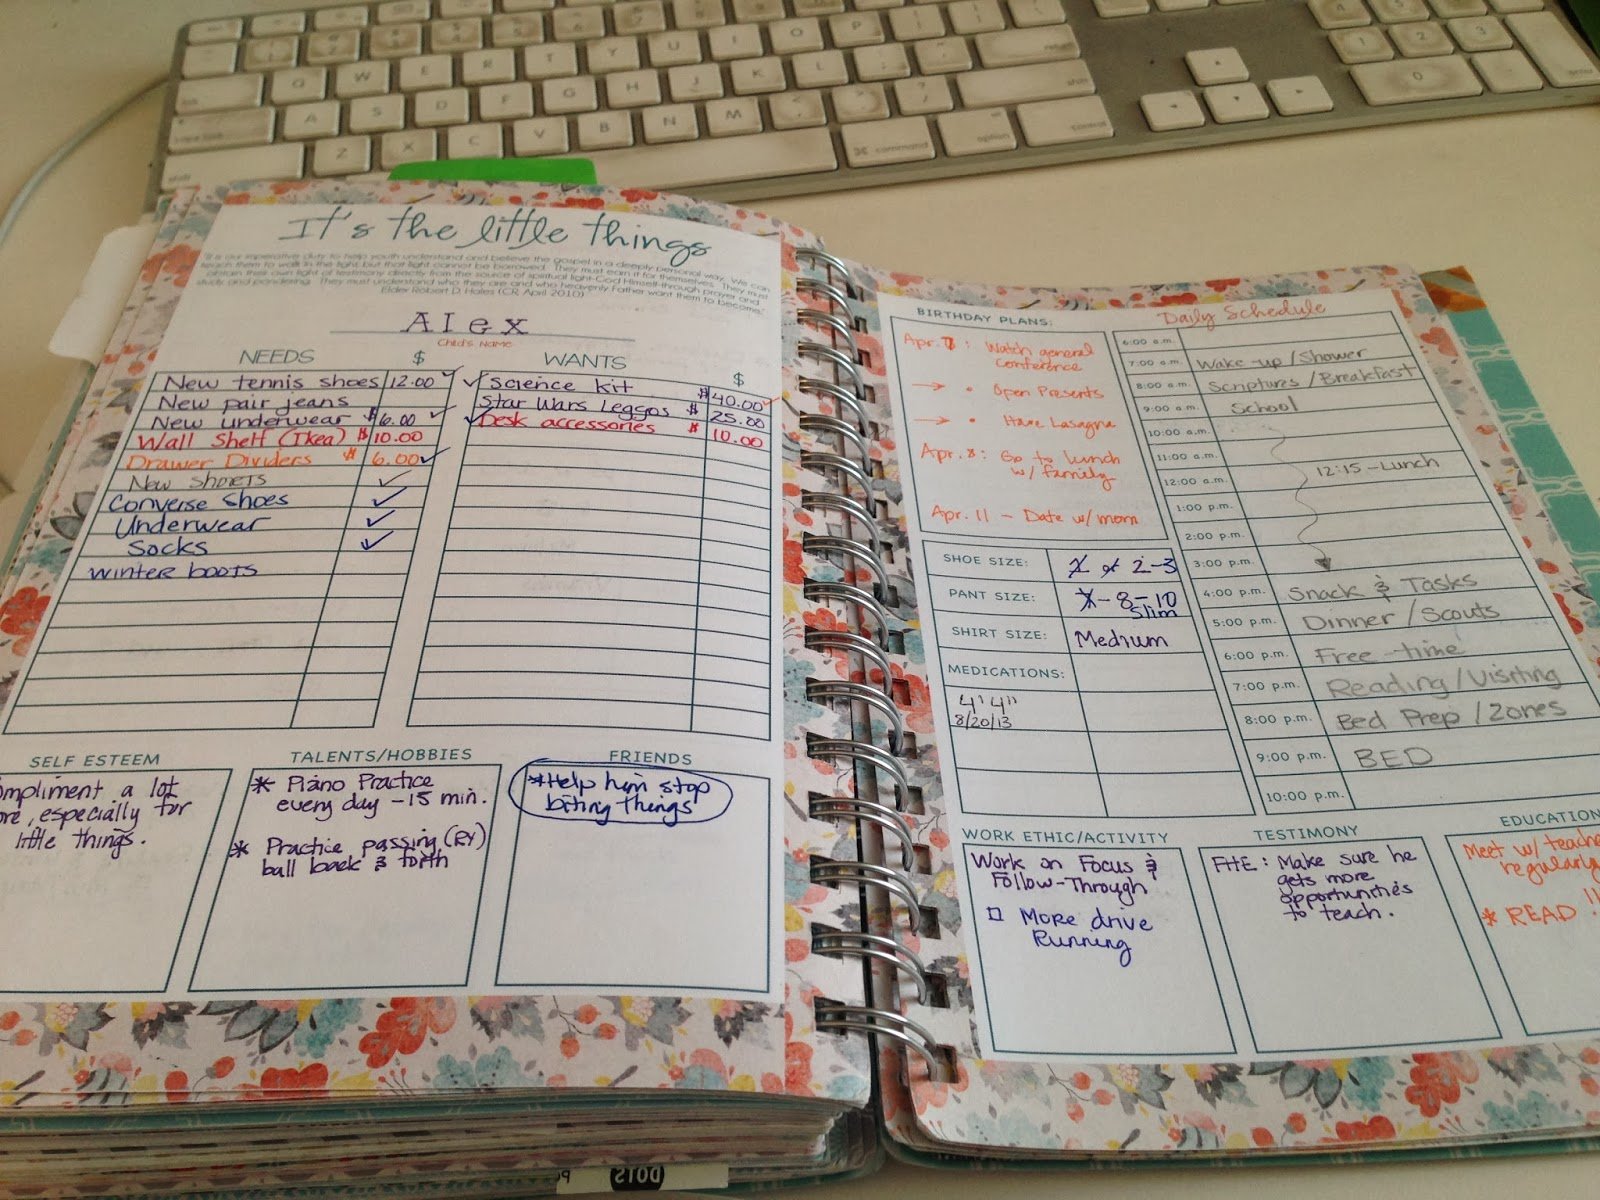 It's the little things
"It is our imperative duty to help youth understand and believe the gospel in a deeply personal way. We can
teach them to walk in the light, but that light cannot be borrowed. They must earn it for themselves. They must
obtain their own light of testimony directly from the source of spiritual light-God Himself-through prayer and
study and pondering. They must understand who they are and who heavenly Father want them to become."
Elder Robert D. Hales (CR April 2010)
Alex
Child's Name
NEEDS $ WANTS $
New tennis shoes 12.00 ✓
New pair jeans
New underwear $ 6.00 ✓
Wall Shelf (Ikea) $10.00
Drawer Dividers $ 6.00 ✓
New shorts ✓
Converse shoes ✓
Underwear ✓
Socks ✓
winter boots
✓ Science kit $40.00 ✓
Star Wars Leggos $ 25.00
✓ Desk accessories $ 10.00
SELF ESTEEM
ompliment a lot
ore, especially for
little things.
TALENTS/HOBBIES
* Piano Practice
every day - 15 min.
* Practice passing (RY)
ball back & forth
FRIENDS
*Help him stop
biting things
BIRTHDAY PLANS:
Apr. 7: Watch general
conference
→ • Open Presents
→ • Have Lasagna
Apr. 8: Go to lunch
w/ family
Apr. 11 - Date w/ mom
SHOE SIZE: 2-3
PANT SIZE: - 8 - 10
Slim
SHIRT SIZE: Medium
MEDICATIONS:
4' 4"
8/20/13
Daily Schedule
6:00 a.m.
7:00 a.m. Wake-up / Shower
8:00 a.m. Scriptures / Breakfast
9:00 a.m. School
10:00 a.m.
11:00 a.m.
12:15 - Lunch
12:00 a.m.
1:00 p.m.
2:00 p.m.
3:00 p.m.
4:00 p.m. Snack & Tasks
5:00 p.m. Dinner / Scouts
6:00 p.m. Free-time
7:00 p.m. Reading / Visiting
8:00 p.m. Bed Prep / Zones
9:00 p.m. BED
10:00 p.m.
WORK ETHIC/ACTIVITY
Work on Focus &
Follow-Through
□ More drive
Running
TESTIMONY
FHE: Make sure he
gets more
opportunities
to teach.
EDUCATION
Meet w/ teache
regularly
* READ !!
DOTS
Q W E R T Y U I O P
A S D F G H J K L
Z X C V B N M
command
option
control
1 2 3
0